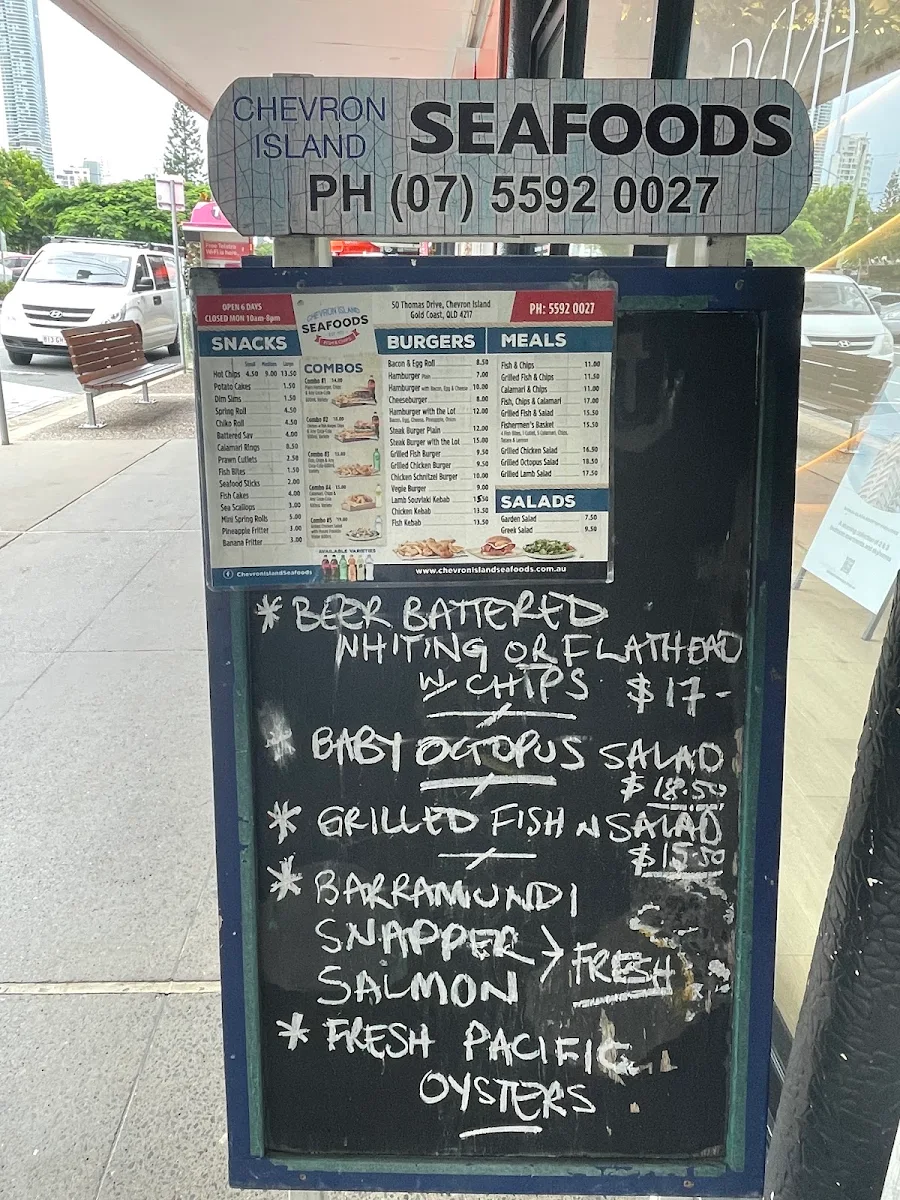 CHEVRON
ISLAND
SEAFOODS
PH (07) 5592 0027
OPEN 6 DAYS
CLOSED MON 10am-8pm
CHEVRON ISLAND
SEAFOODS
50 Thomas Drive, Chevron Island
Gold Coast, QLD 4217
PH: 5592 0027
SNACKS
Small Medium Large
Hot Chips 4.50 9.00 13.50
Potato Cakes 1.50
Dim Sims 1.50
Spring Roll 4.50
Chiko Roll 4.50
Battered Sav 4.00
Calamari Rings 8.50
Prawn Cutlets 2.50
Fish Bites 1.50
Seafood Sticks 2.00
Fish Cakes 4.00
Sea Scallops 3.00
Mini Spring Rolls 5.00
Pineapple Fritter 3.00
Banana Fritter 3.00
COMBOS
Combo #1 14.00
Combo #2
Combo #3
Combo #4
Combo #5
AVAILABLE VARIETIES
BURGERS
Bacon & Egg Roll 8.50
Hamburger Plain 7.00
Hamburger with Bacon, Egg & Cheese 10.00
Cheeseburger 8.00
Hamburger with the Lot 12.00
Bacon, Egg, Cheese, Pineapple, Onion
Steak Burger Plain 12.00
Steak Burger with the Lot 15.00
Grilled Fish Burger 9.50
Grilled Chicken Burger 9.50
Chicken Schnitzel Burger 10.00
Vegie Burger 9.00
Lamb Souvlaki Kebab
Chicken Kebab 13.50
Fish Kebab 13.50
MEALS
Fish & Chips 11.00
Grilled Fish & Chips 11.50
Calamari & Chips 11.00
Fish, Chips & Calamari 17.00
Grilled Fish & Salad 15.50
Fishermen's Basket 15.50
Grilled Chicken Salad 16.50
Grilled Octopus Salad 18.50
Grilled Lamb Salad 17.50
SALADS
Garden Salad 7.50
Greek Salad 9.50
ChevronIslandSeafoods
www.chevronislandseafoods.com.au
* BEER BATTERED
WHITING OR FLATHEAD
W/ CHIPS $17-
* BABY OCTOPUS SALAD
$18.50
* GRILLED FISH N SALAD
$15.50
* BARRAMUNDI
SNAPPER > FRESH
SALMON
* FRESH PACIFIC
OYSTERS